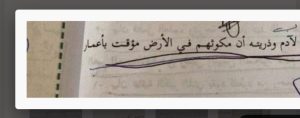 لآدم وذريته أن مكوثهم في الأرض مؤقت بأعمار